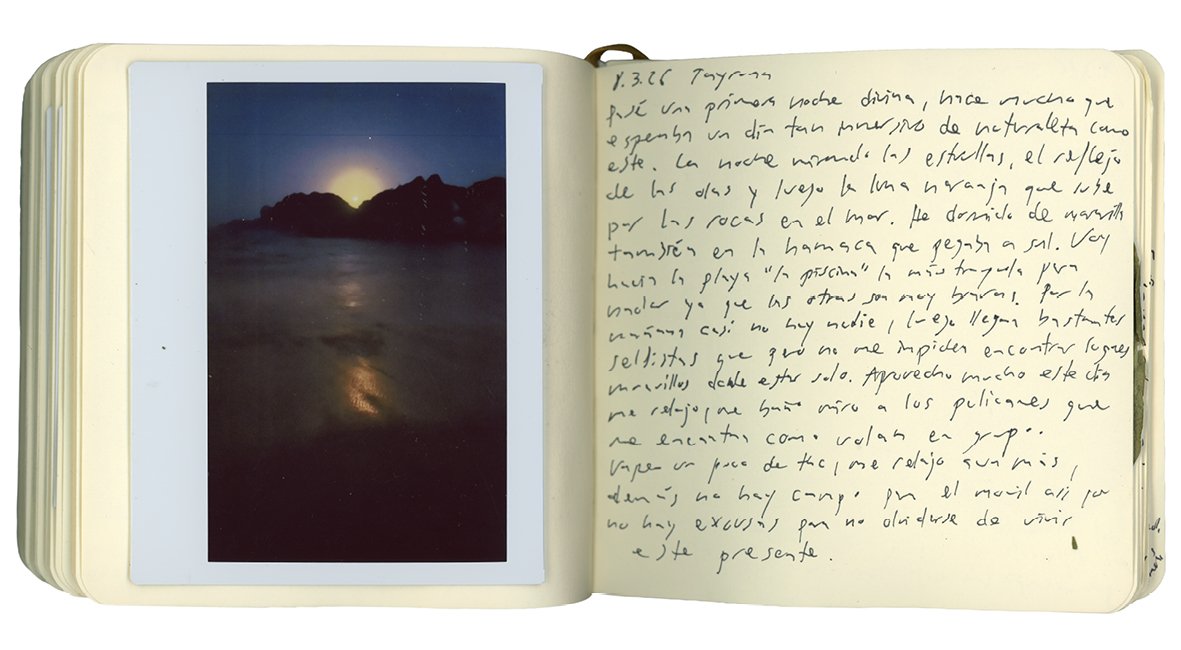 8.3.26 Tayrona
Pasé una primera noche divina, hace mucho que
esperaba un día tan inmersivo de naturaleza como
este. La noche mirando las estrellas, el reflejo
de las olas y luego la luna naranja que sube
por las rocas en el mar. He dormido de maravilla
también en la hamaca que pegaba a sal. Voy
hacia la playa "la piscina" la más tranquila para
nadar ya que las otras son muy bravas. Por la
mañana casi no hay nadie, luego llegan bastantes
selfistas que pero no me impiden encontrar lugares
maravillos donde estar solo. Aprovecho mucho este día
me relajo, me baño miro a los pelicanes que
me encantan como volan en grupo..
Vapeo un poco de thc, me relajo aun más,
demás no hay campo para el movil así que
no hay excusas para no olvidarse de vivir
este presente.